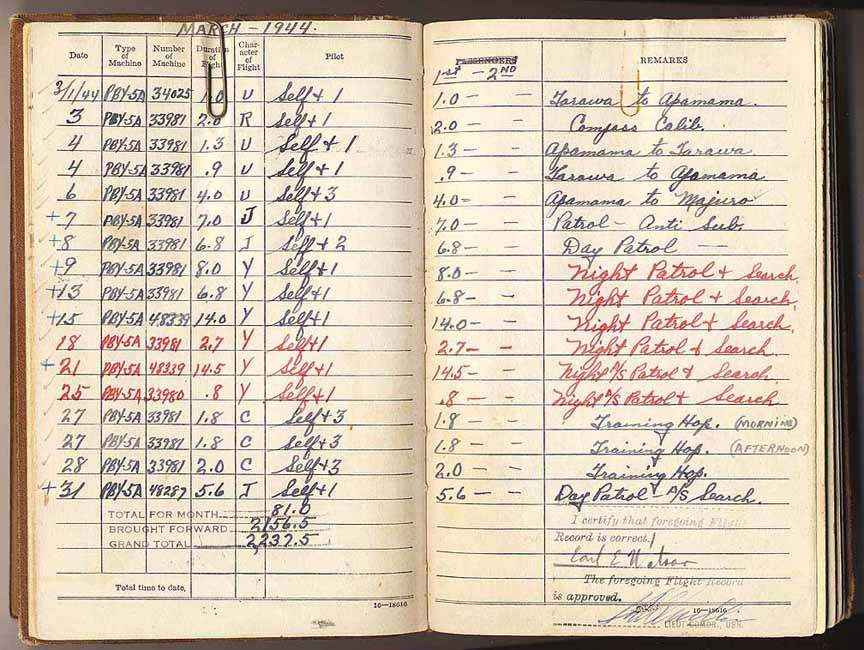 MARCH - 1944.
Date Type of Machine Number of Machine Duration of Flight Character of Flight Pilot
3/1/44 PBY-5A 34025 1.0 U Self + 1
3 PBY-5A 33981 2.0 R Self + 1
4 PBY-5A 33981 1.3 U Self + 1
4 PBY-5A 33981 .9 U Self + 1
6 PBY-5A 33981 4.0 U Self + 3
+ 7 PBY-5A 33981 7.0 J Self + 1
+ 8 PBY-5A 33981 6.8 I Self + 2
+ 9 PBY-5A 33981 8.0 Y Self + 1
+ 13 PBY-5A 33981 6.8 Y Self + 1
+ 15 PBY-5A 48339 14.0 Y Self + 1
18 PBY-5A 33981 2.7 Y Self + 1
+ 21 PBY-5A 48339 14.5 Y Self + 1
25 PBY-5A 33980 .8 Y Self + 1
27 PBY-5A 33981 1.8 C Self + 3
27 PBY-5A 33981 1.8 C Self + 3
28 PBY-5A 33981 2.0 C Self + 3
+ 31 PBY-5A 48287 5.6 I Self + 1
TOTAL FOR MONTH 81.0
BROUGHT FORWARD 2156.5
GRAND TOTAL 2237.5
Total time to date,
16-18616
PASSENGERS REMARKS
1st - 2ND
1.0 - - Tarawa to Apamama.
2.0 - - Compass Calib.
1.3 - - Apamama to Tarawa
.9 - - Tarawa to Apamama
4.0 - - Apamama to Majuro
7.0 - - Patrol - Anti Sub.
6.8 - - Day Patrol -
8.0 - - Night Patrol + Search.
6.8 - - Night Patrol + Search.
14.0 - - Night Patrol + Search.
2.7 - - Night Patrol + Search.
14.5 - - Night A/S Patrol + Search
.8 - - Night A/S Patrol + Search
1.8 - - Training Hop. (MORNING)
1.8 - - Training Hop. (AFTERNOON)
2.0 - - Training Hop.
5.6 - - Day Patrol - A/S Search.
I certify that foregoing Flight
Record is correct.
Earl E
The foregoing Flight Record
is approved.
16-18616
LIEUT COMDR., USN.